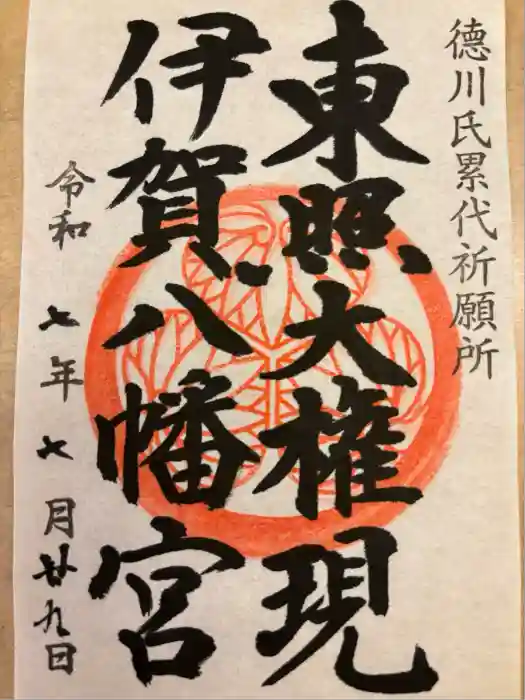 德川氏累代祈願所
東照大権現
伊賀八幡宮
令和七年七月廿九日